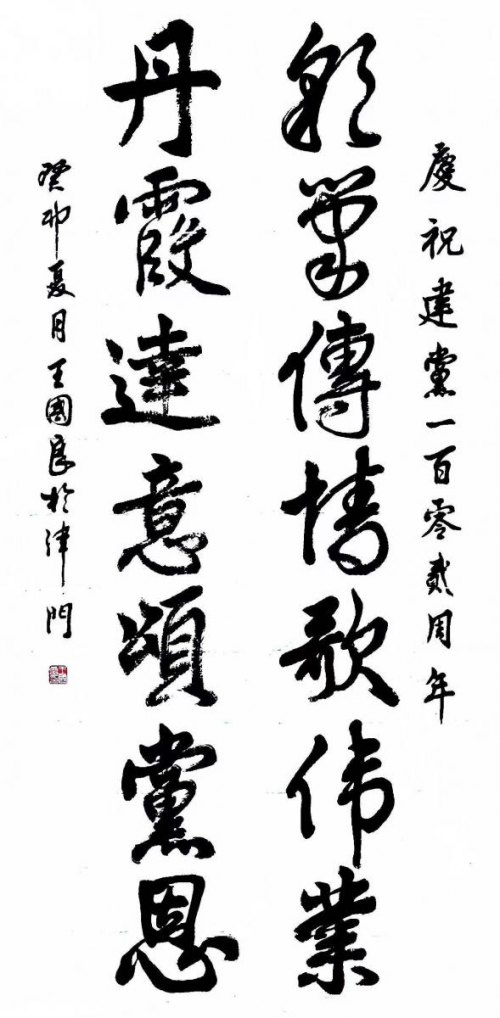 慶祝建黨一百零貳周年
彩筆傳情歌伟業
丹霞達意頌黨恩
癸卯夏月王國良於津門